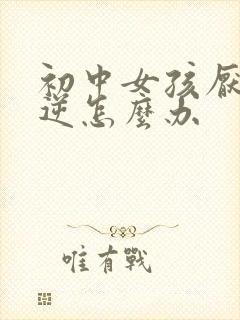 初中女孩厌
逆怎麼办
唯有戰